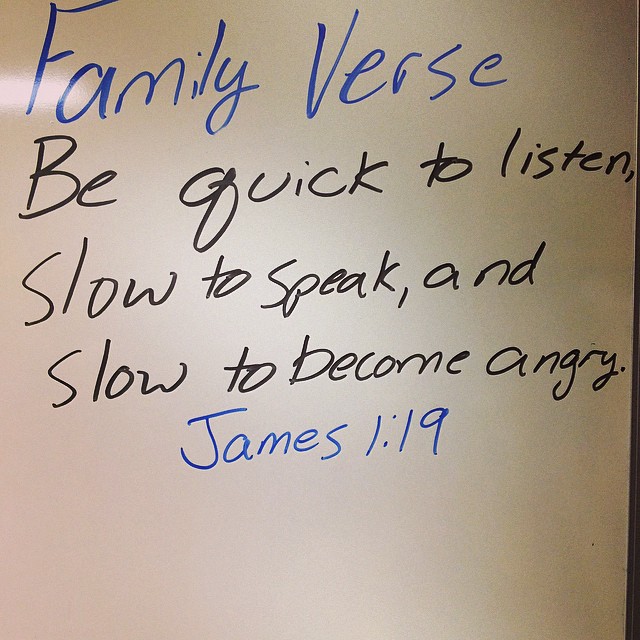 Family Verse
Be quick to listen,
slow to speak, and
slow to become angry.
James 1:19